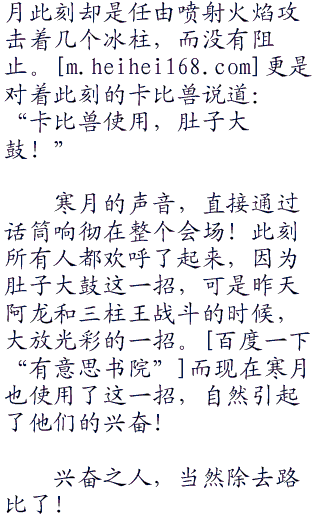 月此刻却是任由喷射火焰攻
击着几个冰柱，而没有阻
止。[m.heihei168.com]更是
对着此刻的卡比兽说道：
“卡比兽使用，肚子大
鼓！”
寒月的声音，直接通过
话筒响彻在整个会场！此刻
所有人都欢呼了起来，因为
肚子大鼓这一招，可是昨天
阿龙和三柱王战斗的时候，
大放光彩的一招。[百度一下
“有意思书院”]而现在寒月
也使用了这一招，自然引起
了他们的兴奋！
兴奋之人，当然除去路
比了！